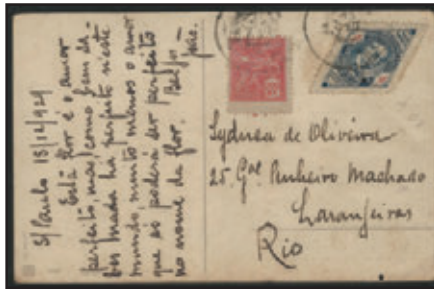 S/Paulo 18/12/929
Está flor é o amor
perfeito, mas, como bem sa-
bes nada ha perfeito neste
mundo, muito menos o amor
que só poderá ser perfeito
no nome da flor.
Lydusa de Oliveira
25. Gal Pinheiro Machado
Laranjeiras
Rio